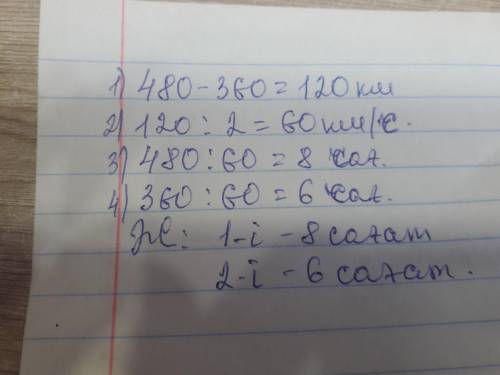 1) 480-360=120км
2) 120:2=60км/с.
3) 480:60=8 сағ.
4) 360:60=6 сағ.
Ж: 1-і-8 сағат
2-і-6 сағат.